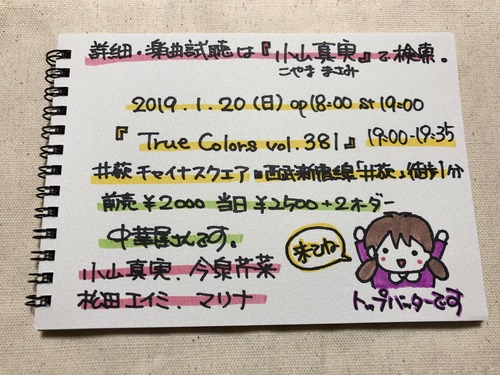 詳細・楽曲試聴は『小山真実』で検索。
こやま まさみ
2019.1.20(日) op18:00 st19:00
『True Colors vol.381』 19:00-19:35
井荻チャイナスクエア 西武新宿線「井荻」徒歩1分
前売¥2000 当日¥2500+2オーダー
中華屋さんです。
小山真実、今泉芹菜
松田エイミ、マリナ
来てね
トップバッターです